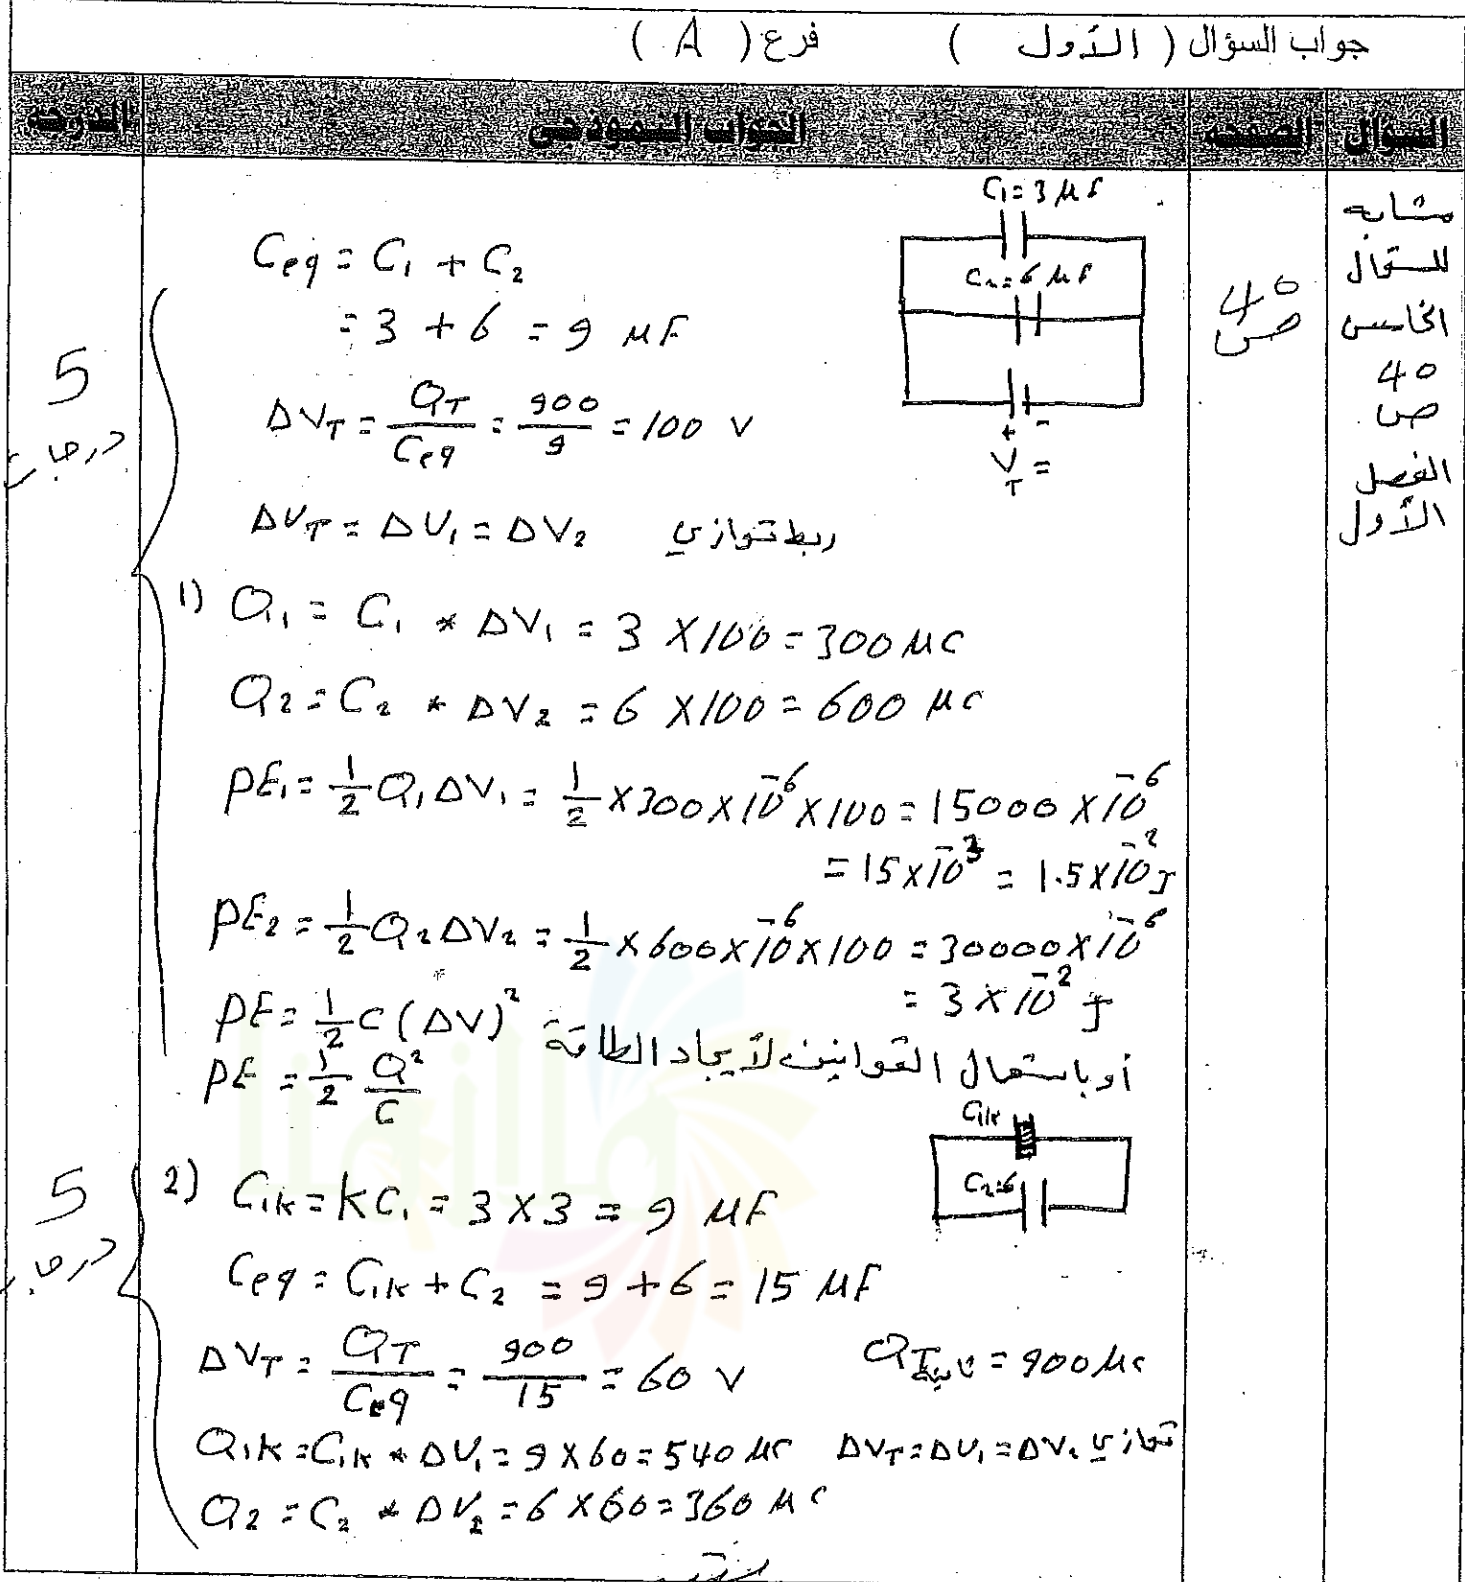 جواب السؤال ( الأول ) فرع ( A )
السؤال الصفحة الجواب النموذجي الدرجة
مشابه
للسؤال
الخامس
40
ص
الفصل
الأول
40
ص
C₁=3 μF
C₂=6 μF
+ -
V_T =
C_eq = C₁ + C₂
= 3 + 6 = 9 μF
5
درجات
ΔV_T = Q_T/C_eq = 900/9 = 100 V
ΔV_T = ΔV₁ = ΔV₂ ربط توازي
1) Q₁ = C₁ * ΔV₁ = 3 X 100 = 300 μC
Q₂ = C₂ * ΔV₂ = 6 X 100 = 600 μC
PE₁ = 1/2 Q₁ ΔV₁ = 1/2 X 300 X 10⁻⁶ X 100 = 15000 X 10⁻⁶
= 15 X 10⁻³ = 1.5 X 10⁻² J
PE₂ = 1/2 Q₂ ΔV₂ = 1/2 X 600 X 10⁻⁶ X 100 = 30000 X 10⁻⁶
= 3 X 10⁻² J
PE = 1/2 C (ΔV)²
أو باستعمال القوانين لأيجاد الطاقة
PE = 1/2 Q²/C
C₁ₖ
C₂=6
5
درجات
2) C₁ₖ = kC₁ = 3 X 3 = 9 μF
C_eq = C₁ₖ + C₂ = 9 + 6 = 15 μF
ΔV_T = Q_T/C_eq = 900/15 = 60 V Q_T ثابتة = 900 μC
Q₁ₖ = C₁ₖ * ΔV₁ = 9 X 60 = 540 μC ΔV_T = ΔV₁ = ΔV₂ توازي
Q₂ = C₂ * ΔV₂ = 6 X 60 = 360 μC